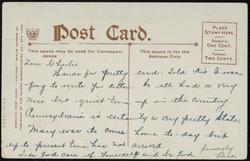 Post Card.
PLACE
STAMP HERE
DOMESTIC
ONE CENT
FOREIGN
TWO CENTS
This space may be used for Correspondence
This space is for the Address Only
Dear
Thanks for pretty card. Told
going to write you letter. We all had a very
nice but quiet up in the Country
Pennsylvania is certainly a very Pretty State.
Mary was to come home to-day but
up to present time has not arrived.
Take good care of Yourself and be good
Sincerely